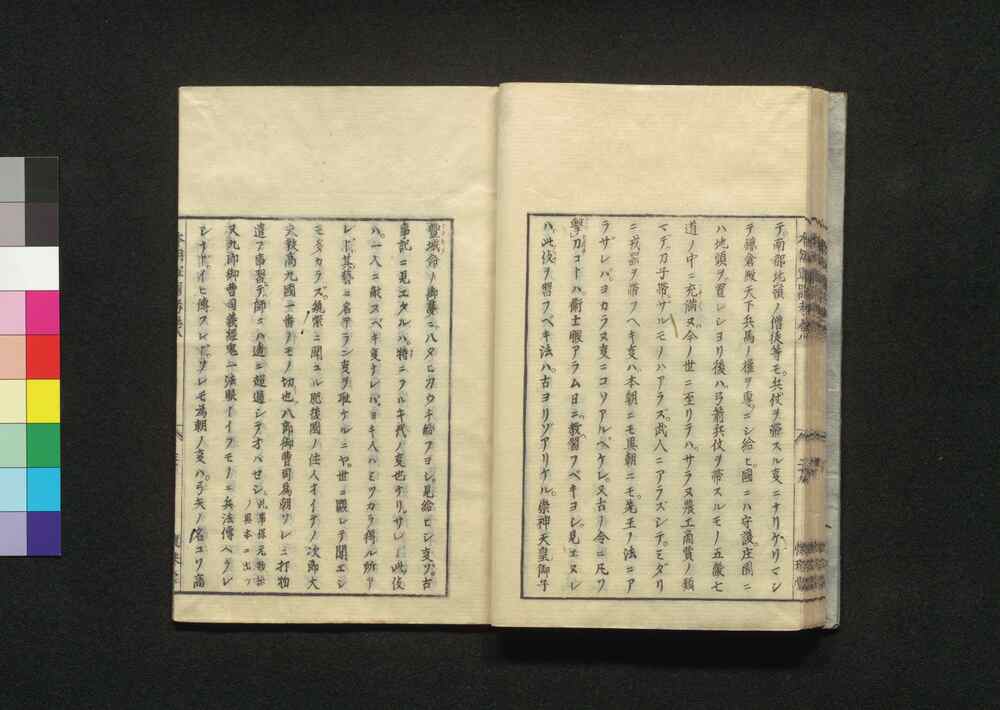 テ南都北嶺ノ僧徒等モ兵仗ヲ帶スル叓ニナリケリマシ
テ鎌倉殿天下兵馬ノ權ヲ專ニシ給ヒ國ニハ守護庄園ニ
ハ地頭ヲ置レシヨリ後ハ弓箭兵仗ヲ帶スルモノ五畿七
道ノ中ニ充滿ヌ今ノ世ニ至リテハサラヌ農工商賈ノ類
マデ刀子帶サルモノハアラズ武人ニアラズシテミダリ
ニ戎器ヲ帶フヘキ叓ハ本朝ニモ異朝ニモ先王ノ法ニア
ラサレバヨカラヌ叓ニコソアルベケレ又古ノ令ニ凡ソ
擊刀コトハ衛士暇アラム日ニ教習フベキヨシ見エヌレ
ハ此伎ヲ習フベキ法ハ古ヨリゾアリケル崇神天皇御子
豐城命ノ御夢ニ八タヒタカウチ給フヨシ見給ヒシ叓ヲ古
事記ニ見エタルハ特ニフルキ代ノ叓也ケリサレト此伎
ハ一人ニ敵スベキ叓ナレバヨキ人ハヒツカラ得ル所ヲ
レド其藝ニ名ヲエラン叓ヲ雖ケルニヤ世ニ顯レテ聞エシ
モタカラズ鏡衆ニ聞ユル肥後國ノ住人オイテノ次郎大
夫敎高九國一番ノモノ切也八郎御曹司爲朝ソレニ打物
遣フ事習テ師ニハ遙ニ超過シテオハセシ此事保元物語ノ異本ニ出ツ
又九郎御曹司義經鬼一法眼トイフモノニ兵法傳ヘラレ
シナドイヒ傳フレドソレモ爲朝ノ叓ハ弓矢ノ名ヨリ高